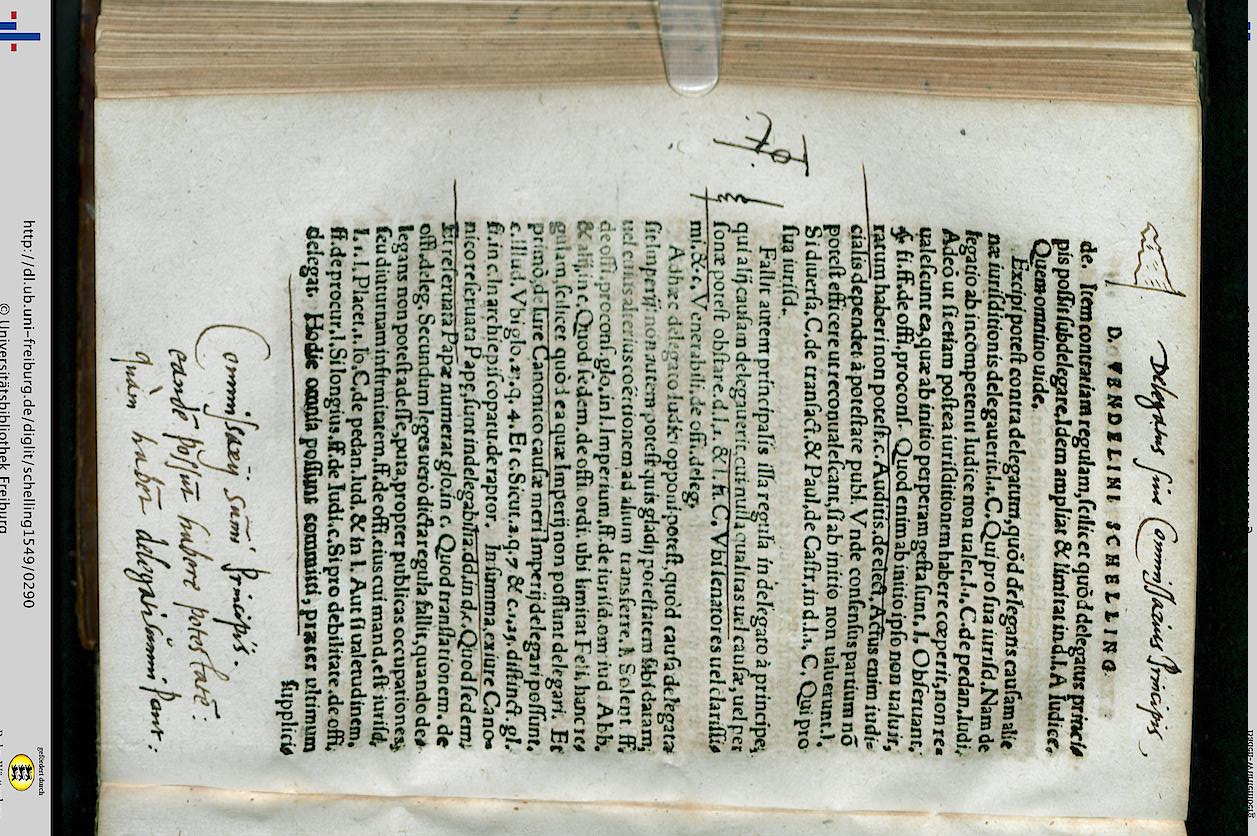 Delegatus sive Commissarius Principis,
D. VENDELINI SCHELLING
de. Item contrariam regulam, scilicet quòd delegatus princi⸗
pis possit subdelegare, Idem ampliat & limitat in d. l. A Iudice.
Quem omnino uide.
Excipi potest contra delegatum, quòd delegans causam alie
næ iurisditionis delegauerit. l. 1. C. Qui pro sua iurisd. Nam de
legatio ab incompetenti Iudice non ualet. l. 1. C. de pedan. Iudi.
Adeò ut si etiam postea iurisditionem habere cœperit, non re⸗
ualescunt ea, quæ ab initio perperam gesta sunt. l. Obseruant,
§ fi. ff. de offi. procons. Quod enim ab initio ipso non ualuit,
ratum haberi non potest. c. Auditis. de elect. Actus enim iudi⸗
cialis dependet à potestate publ. Vnde consensus partium nō
potest efficere ut reconualescant, si ab initio non ualuerunt. l.
Si diuersa. C. de transact. & Paul. de Castr. in d. l. 1. C. Qui pro
sua iurisd.
Fallit autem principalis illa regula in delegato à principe,
qui alij causam delegauerit, cui nulla qualitas uel causæ, uel per
sonæ potest obstare. d. l. 1. & l. h. C. Vbi senatores uel clarissi⸗
mi. & c. Venerabili. de offi. deleg.
Adhæc delegato Iudici opponi potest, quòd causa delegata
sit Imperij, non autem potest quis gladij potestatem sibi datam,
uel cuius alterius coërtionem ad alium transferre. l. Solent ff.
de offi. procons. glo. in l. Imperium. ff. de iurisd. om iud Abb.
& alij in c. Quod sedem. de offi. ordi. ubi limitat Feli. hanc re⸗
gulam, scilicet quòd ea quæ Imperij non possunt delegari. Et
primò, de Iure Canonico causæ meri Imperij delegari possunt.
c. illud. Vbi glo. 2. q. 4. Et c. Sicut. 2. q. 7 & c. 2. 23. distinct. gl.
fi. in c. In archiepiscopatu. de raptor. In summa, ex iure Cano⸗
nico reseruata Papę, sunt indelegabilia. d. d. in d. c. Quod sedem.
Et reseruata Papæ numerat glo. in c. Quod translationem. de
offi. deleg. Secundum leges uerò dicta regula fallit, quando de⸗
legans non potest adesse, puta, propter publicas occupationes,
seu diuturnam infirmitatem. ff. de offi. eius cui mand. est iurisd.
l. 1. l. Placet. 2. lo. C. de pedan. Iud. & in l. Aut si ualetudinem.
ff. de procur. l. Si longius. ff. de Iudi. c. Si pro debilitate. de offi.
delegat. Hodie omnia possunt committi, præter ultimum
supplicio
Commissarij summi Principis.
eandē possunt habere potestatē:
quàm habēt delegati summi Pont:
http://dl.ub.uni-freiburg.de/diglit/schelling1549/0290
© Universitätsbibliothek Freiburg
gefördert durch